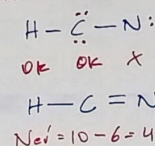 H — C̈ — N:
OK OK X
H — C = N
Nev = 10 - 6 = 4